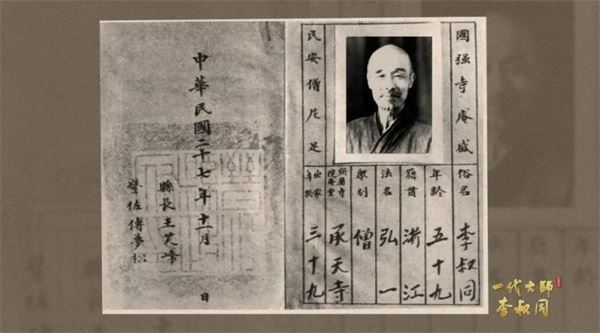 國强寺·庵盛
民安僧尼足
俗名 李叔同
年齡 五十九
籍貫 浙江
法名 弘一
眾別 僧
所屬寺 承天寺
出家年齡 三十九
中華民國二十七年十一月 日
縣長王芙峰
警佐傅夢松
一代大师
李叔同